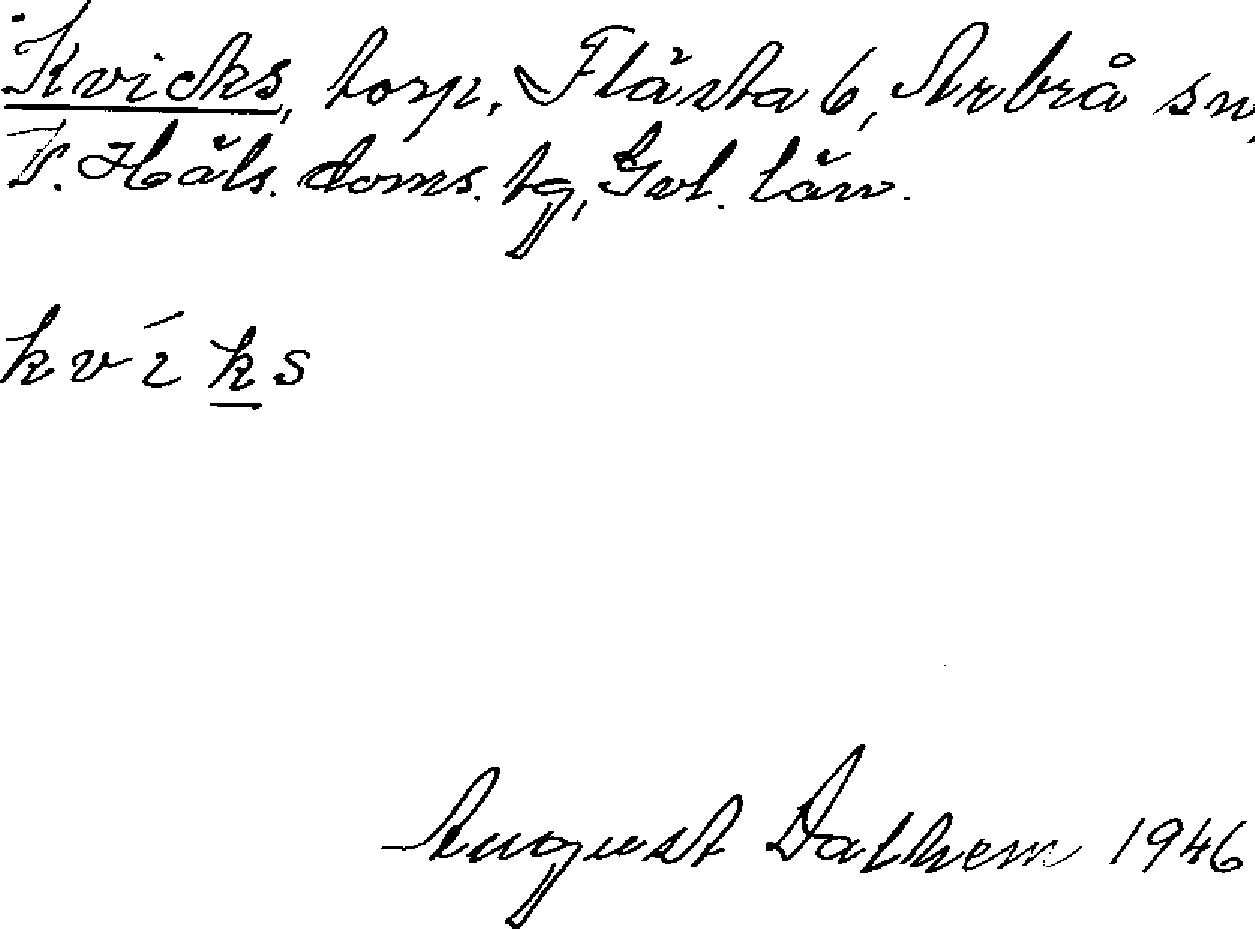 Kvicks, torp, Flästa 6, Arbrå sn,
V. Häls. doms. tg, Gvl. län.
kvíks
August Dalhem 1946